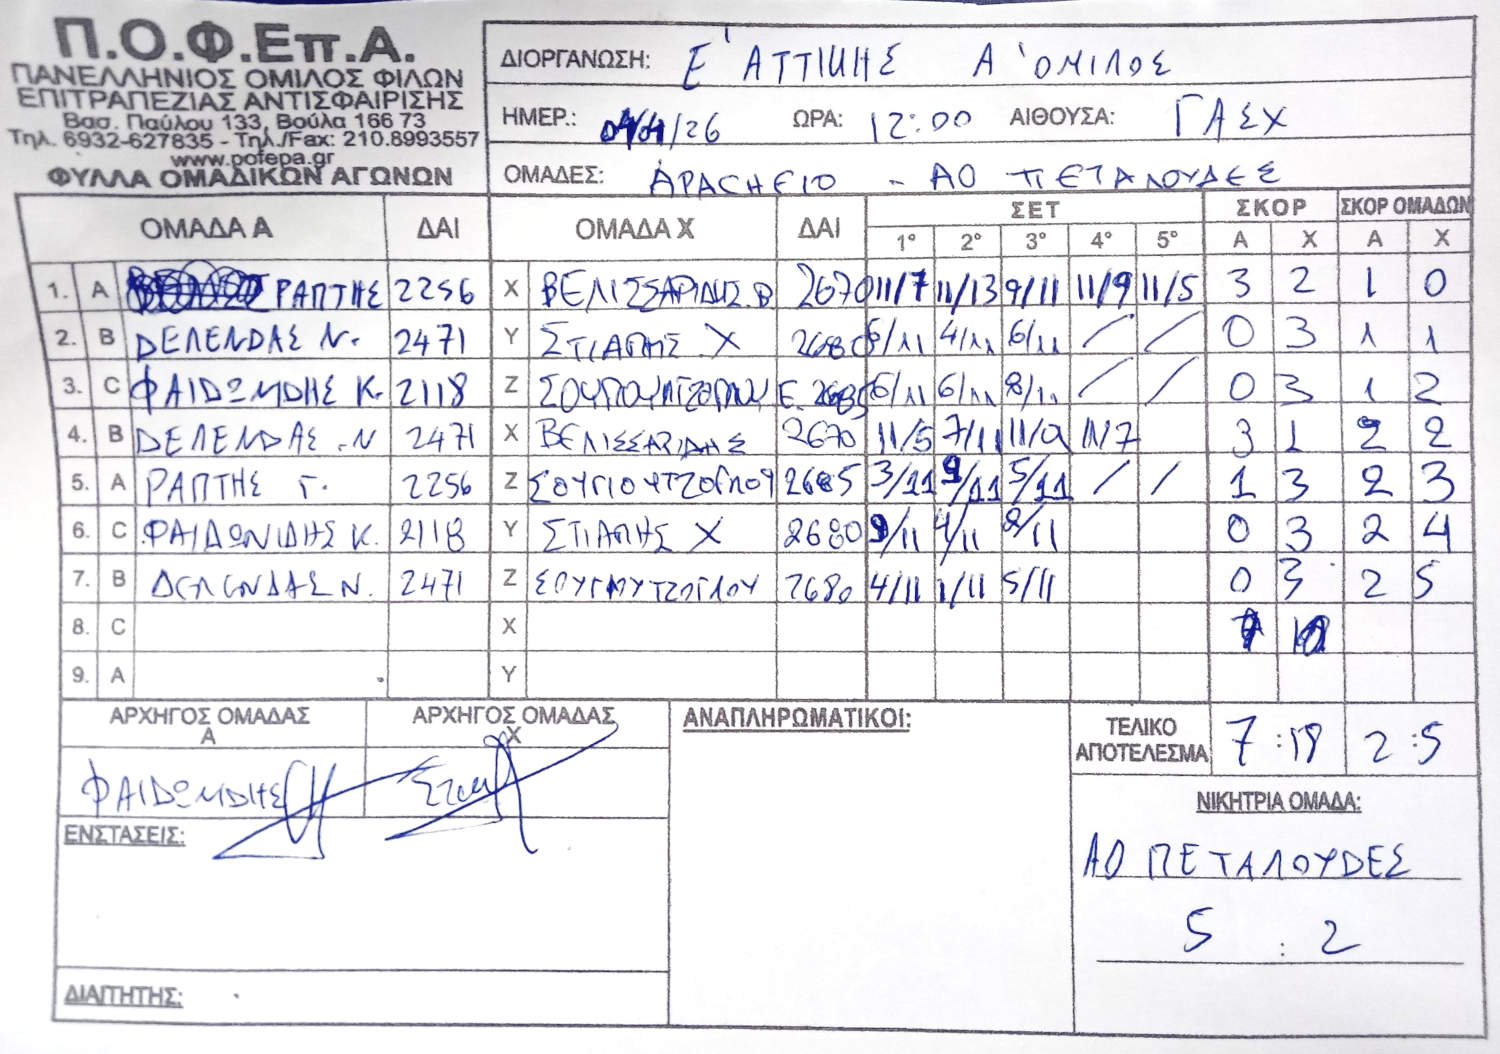 Π.Ο.Φ.Επ.Α.
ΠΑΝΕΛΛΗΝΙΟΣ ΟΜΙΛΟΣ ΦΙΛΩΝ
ΕΠΙΤΡΑΠΕΖΙΑΣ ΑΝΤΙΣΦΑΙΡΙΣΗΣ
Βασ. Παύλου 133, Βούλα 166 73
Τηλ. 6932-627835 - Τηλ./Fax: 210.8993557
www.pofepa.gr
ΦΥΛΛΑ ΟΜΑΔΙΚΩΝ ΑΓΩΝΩΝ
ΔΙΟΡΓΑΝΩΣΗ: Ε' ΑΤΤΙΚΗΣ Α' ΟΜΙΛΟΣ
ΗΜΕΡ.: /26 ΩΡΑ: 12:00 ΑΙΘΟΥΣΑ: ΓΑΣΧ
ΟΜΑΔΕΣ: APACHEIO - ΑΟ ΠΕΤΑΛΟΥΔΕΣ
ΟΜΑΔΑ Α ΔΑΙ ΟΜΑΔΑ Χ ΔΑΙ ΣΕΤ ΣΚΟΡ ΣΚΟΡ ΟΜΑΔΩΝ
1° 2° 3° 4° 5° Α Χ Α Χ
1. Α ΡΑΠΤΗΣ 2256 Χ ΒΕΛΙΣΣΑΡΙΔΗΣ.Β 2670 11/7 11/13 9/11 11/9 11/5 3 2 1 0
2. Β ΔΕΛΕΝΔΑΣ Ν. 2471 Υ ΣΤΙΑΠΗΣ Χ 2680 6/11 4/11 6/11 / / 0 3 1 1
3. C ΦΑΙΔΩΝΙΔΗΣ Κ. 2118 Ζ Ε. 2685 6/11 6/11 8/11 / / 0 3 1 2
4. Β ΔΕΛΕΝΔΑΣ .Ν 2471 Χ ΒΕΛΙΣΣΑΡΙΔΗΣ 2670 11/5 7/11 11/9 11/7 3 1 2 2
5. Α ΡΑΠΤΗΣ Γ. 2256 Ζ ΣΟΥΓΙΟΥΤΖΟΓΛΟΥ 2685 3/11 9/11 5/11 / / 1 3 2 3
6. C ΦΑΙΔΩΝΙΔΗΣ Κ. 2118 Υ ΣΤΙΑΠΗΣ Χ 2680 9/11 4/11 8/11 0 3 2 4
7. Β ΔΕΛΕΝΔΑΣ Ν. 2471 Ζ ΣΟΥΓΙΟΥΤΖΟΓΛΟΥ 2680 4/11 1/11 5/11 0 3 2 5
8. C Χ
9. Α Υ
ΑΡΧΗΓΟΣ ΟΜΑΔΑΣ Α ΑΡΧΗΓΟΣ ΟΜΑΔΑΣ Χ ΑΝΑΠΛΗΡΩΜΑΤΙΚΟΙ: ΤΕΛΙΚΟ ΑΠΟΤΕΛΕΣΜΑ 7:18 2:5
ΦΑΙΔΩΝΙΔΗΣ
ΝΙΚΗΤΡΙΑ ΟΜΑΔΑ:
ΕΝΣΤΑΣΕΙΣ:
ΑΟ ΠΕΤΑΛΟΥΔΕΣ
5 : 2
ΔΙΑΙΤΗΤΗΣ: